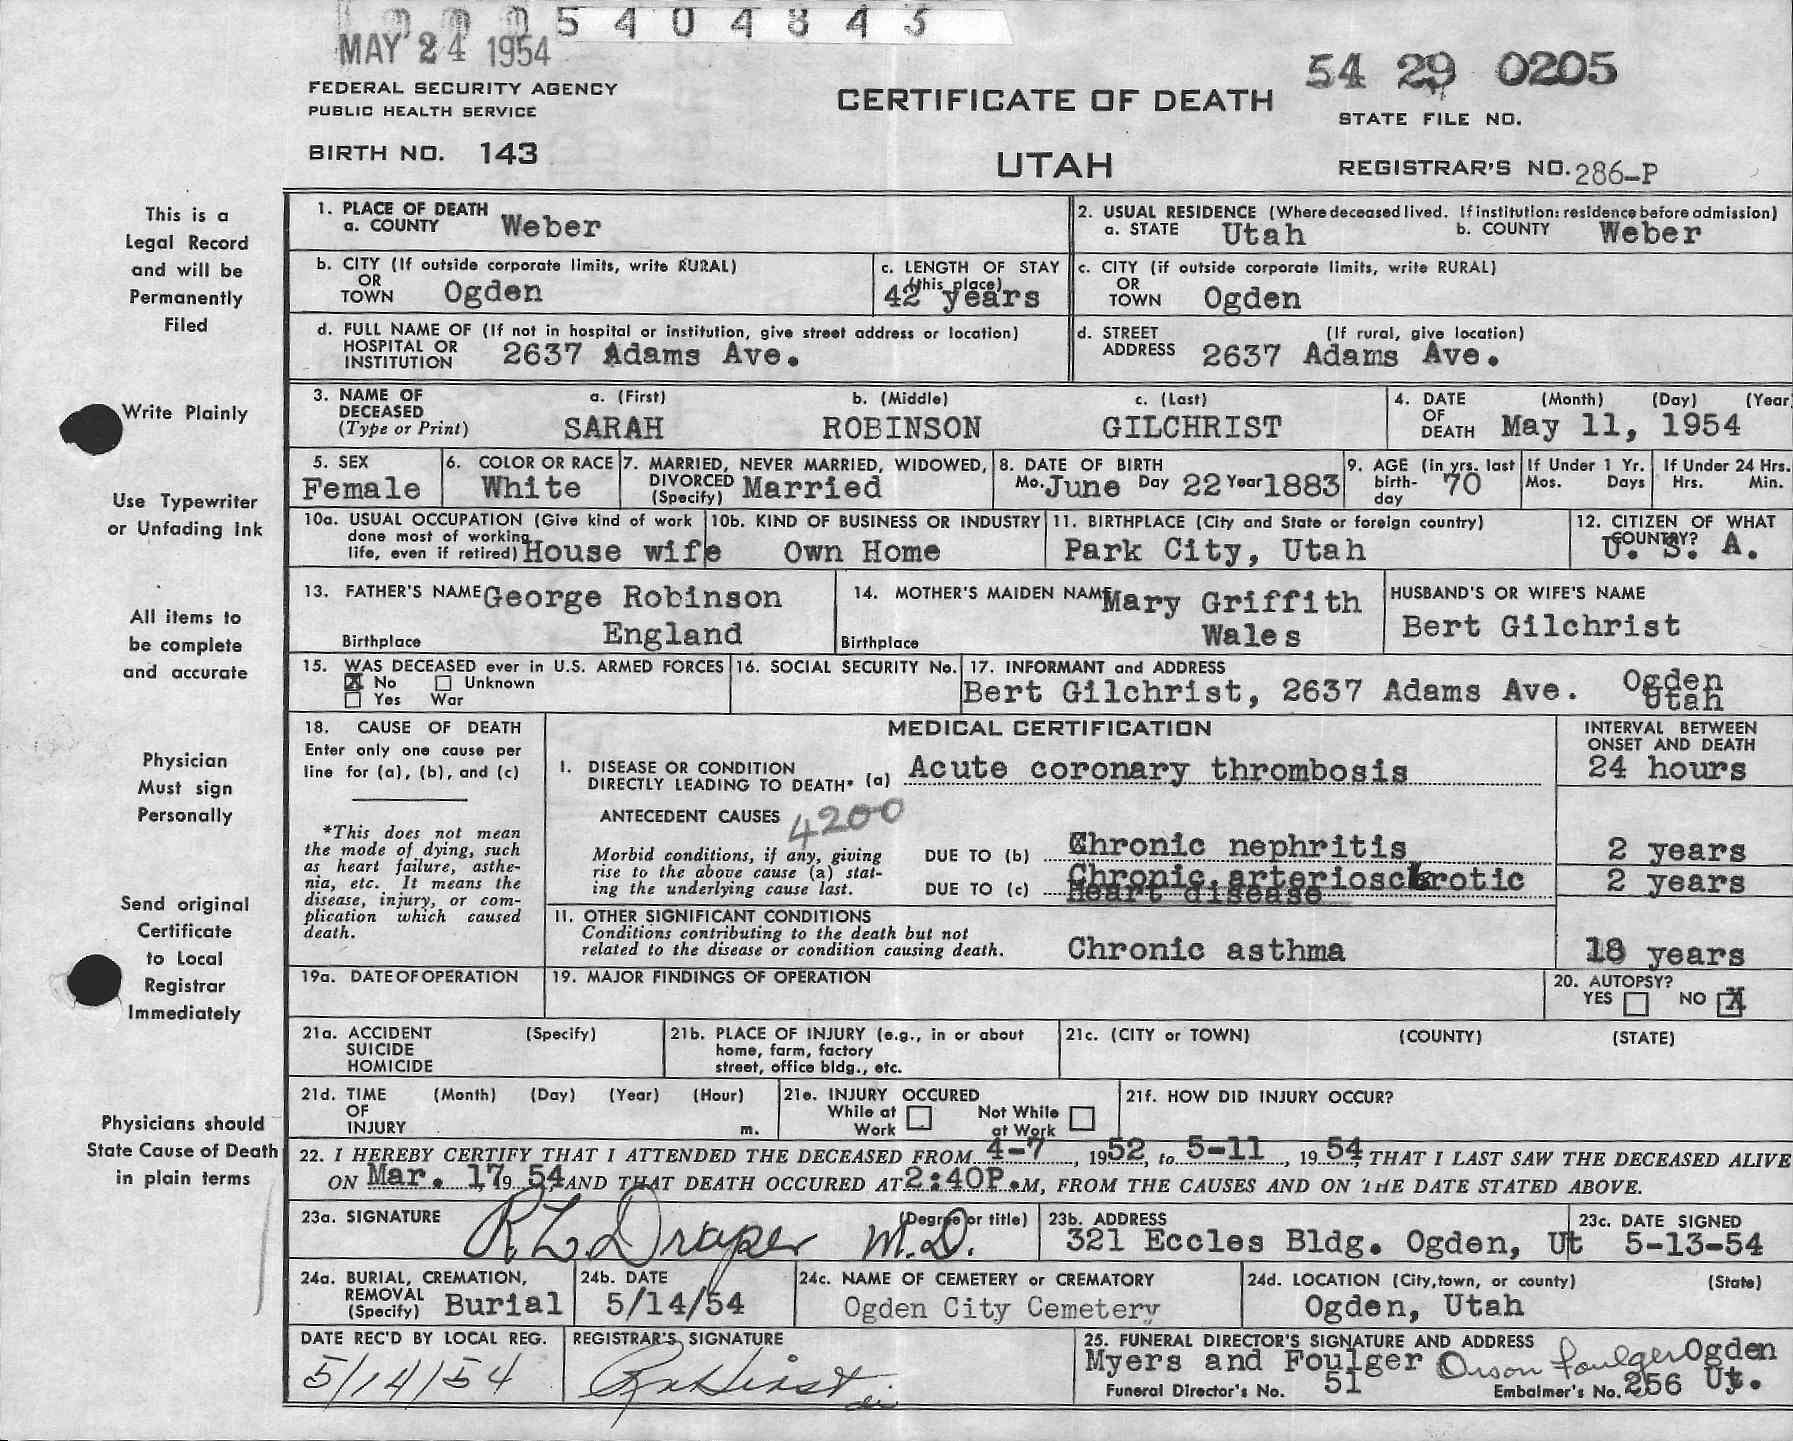 5 4 0 4 8 4 3
MAY 24 1954
54 29 0205
FEDERAL SECURITY AGENCY
PUBLIC HEALTH SERVICE
CERTIFICATE OF DEATH
STATE FILE NO.
BIRTH NO. 143
UTAH
REGISTRAR'S NO. 286-P
This is a
Legal Record
and will be
Permanently
Filed
Write Plainly
Use Typewriter
or Unfading Ink
All items to
be complete
and accurate
Physician
Must sign
Personally
Send original
Certificate
to Local
Registrar
Immediately
Physicians should
State Cause of Death
in plain terms
1. PLACE OF DEATH
a. COUNTY Weber
2. USUAL RESIDENCE (Where deceased lived. If institution: residence before admission)
a. STATE Utah b. COUNTY Weber
b. CITY (If outside corporate limits, write RURAL)
OR
TOWN Ogden
c. LENGTH OF STAY
(this place)
42 years
c. CITY (if outside corporate limits, write RURAL)
OR
TOWN Ogden
d. FULL NAME OF (If not in hospital or institution, give street address or location)
HOSPITAL OR
INSTITUTION 2637 Adams Ave.
d. STREET (If rural, give location)
ADDRESS 2637 Adams Ave.
3. NAME OF a. (First) b. (Middle) c. (Last)
DECEASED
(Type or Print) SARAH ROBINSON GILCHRIST
4. DATE (Month) (Day) (Year
OF
DEATH May 11, 1954
5. SEX
Female
6. COLOR OR RACE
White
7. MARRIED, NEVER MARRIED, WIDOWED,
DIVORCED
(Specify) Married
8. DATE OF BIRTH
Mo. June Day 22 Year 1883
9. AGE (in yrs. last
birth-
day 70
If Under 1 Yr.
Mos. Days
If Under 24 Hrs.
Hrs. Min.
10a. USUAL OCCUPATION (Give kind of work
done most of working
life, even if retired) House wife
10b. KIND OF BUSINESS OR INDUSTRY
Own Home
11. BIRTHPLACE (City and State or foreign country)
Park City, Utah
12. CITIZEN OF WHAT
COUNTRY?
U. S. A.
13. FATHER'S NAME George Robinson
Birthplace England
14. MOTHER'S MAIDEN NAME Mary Griffith
Birthplace Wales
HUSBAND'S OR WIFE'S NAME
Bert Gilchrist
15. WAS DECEASED ever in U.S. ARMED FORCES
X No Unknown
Yes War
16. SOCIAL SECURITY No.
17. INFORMANT and ADDRESS
Bert Gilchrist, 2637 Adams Ave. Ogden
Utah
18. CAUSE OF DEATH
Enter only one cause per
line for (a), (b), and (c)
*This does not mean
the mode of dying, such
as heart failure, asthe-
nia, etc. It means the
disease, injury, or com-
plication which caused
death.
MEDICAL CERTIFICATION
INTERVAL BETWEEN
ONSET AND DEATH
I. DISEASE OR CONDITION
DIRECTLY LEADING TO DEATH* (a) Acute coronary thrombosis 24 hours
ANTECEDENT CAUSES 4200
Morbid conditions, if any, giving
rise to the above cause (a) stat-
ing the underlying cause last.
DUE TO (b) Chronic nephritis 2 years
DUE TO (c) Chronic arteriosclerotic 2 years
Heart disease
II. OTHER SIGNIFICANT CONDITIONS
Conditions contributing to the death but not
related to the disease or condition causing death. Chronic asthma 18 years
19a. DATE OF OPERATION
19. MAJOR FINDINGS OF OPERATION
20. AUTOPSY?
YES NO X
21a. ACCIDENT (Specify)
SUICIDE
HOMICIDE
21b. PLACE OF INJURY (e.g., in or about
home, farm, factory
street, office bldg., etc.
21c. (CITY or TOWN) (COUNTY) (STATE)
21d. TIME (Month) (Day) (Year) (Hour)
OF
INJURY m.
21e. INJURY OCCURED
While at Not While
Work at Work
21f. HOW DID INJURY OCCUR?
22. I HEREBY CERTIFY THAT I ATTENDED THE DECEASED FROM 4-7, 1952, to 5-11, 1954, THAT I LAST SAW THE DECEASED ALIVE
ON Mar. 17, 19 54 AND THAT DEATH OCCURED AT 2:40P.M, FROM THE CAUSES AND ON THE DATE STATED ABOVE.
23a. SIGNATURE (Degree or title)
R L Draper M.D.
23b. ADDRESS
321 Eccles Bldg. Ogden, Ut
23c. DATE SIGNED
5-13-54
24a. BURIAL, CREMATION,
REMOVAL
(Specify) Burial
24b. DATE
5/14/54
24c. NAME OF CEMETERY or CREMATORY
Ogden City Cemetery
24d. LOCATION (City, town, or county) (State)
Ogden, Utah
DATE REC'D BY LOCAL REG.
5/14/54
REGISTRAR'S SIGNATURE
25. FUNERAL DIRECTOR'S SIGNATURE AND ADDRESS
Myers and Foulger Orson Foulger Ogden
Funeral Director's No. 51 Embalmer's No. 256 Ut.